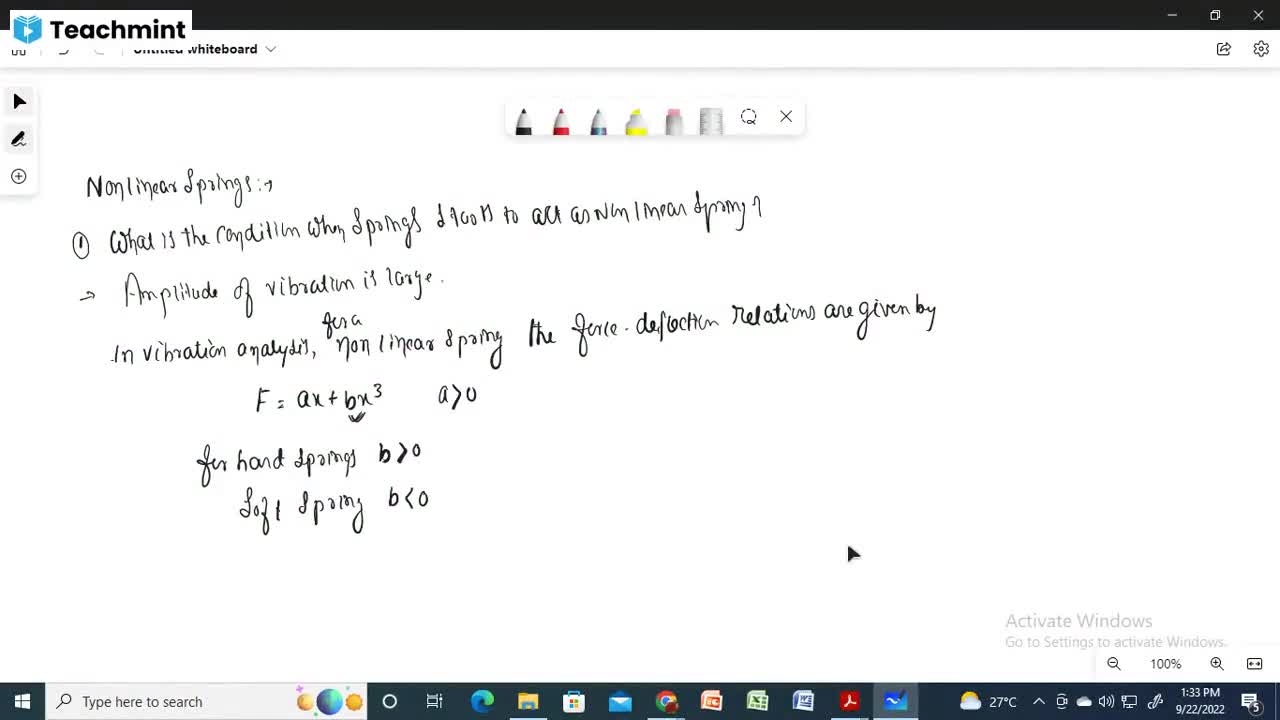 Teachmint
Untitled whiteboard
Nonlinear Springs:→
① What is the condition when Springs starts to act as Non linear Spring?
→ Amplitude of vibration is large.
for a
In vibration analysis, non linear spring the force-deflection relations are given by
F = ax + bx³ a>0
for hard springs b>0
Soft Spring b<0
Activate Windows
Go to Settings to activate Windows.
100%
Type here to search
27°C
1:33 PM
9/22/2022
5